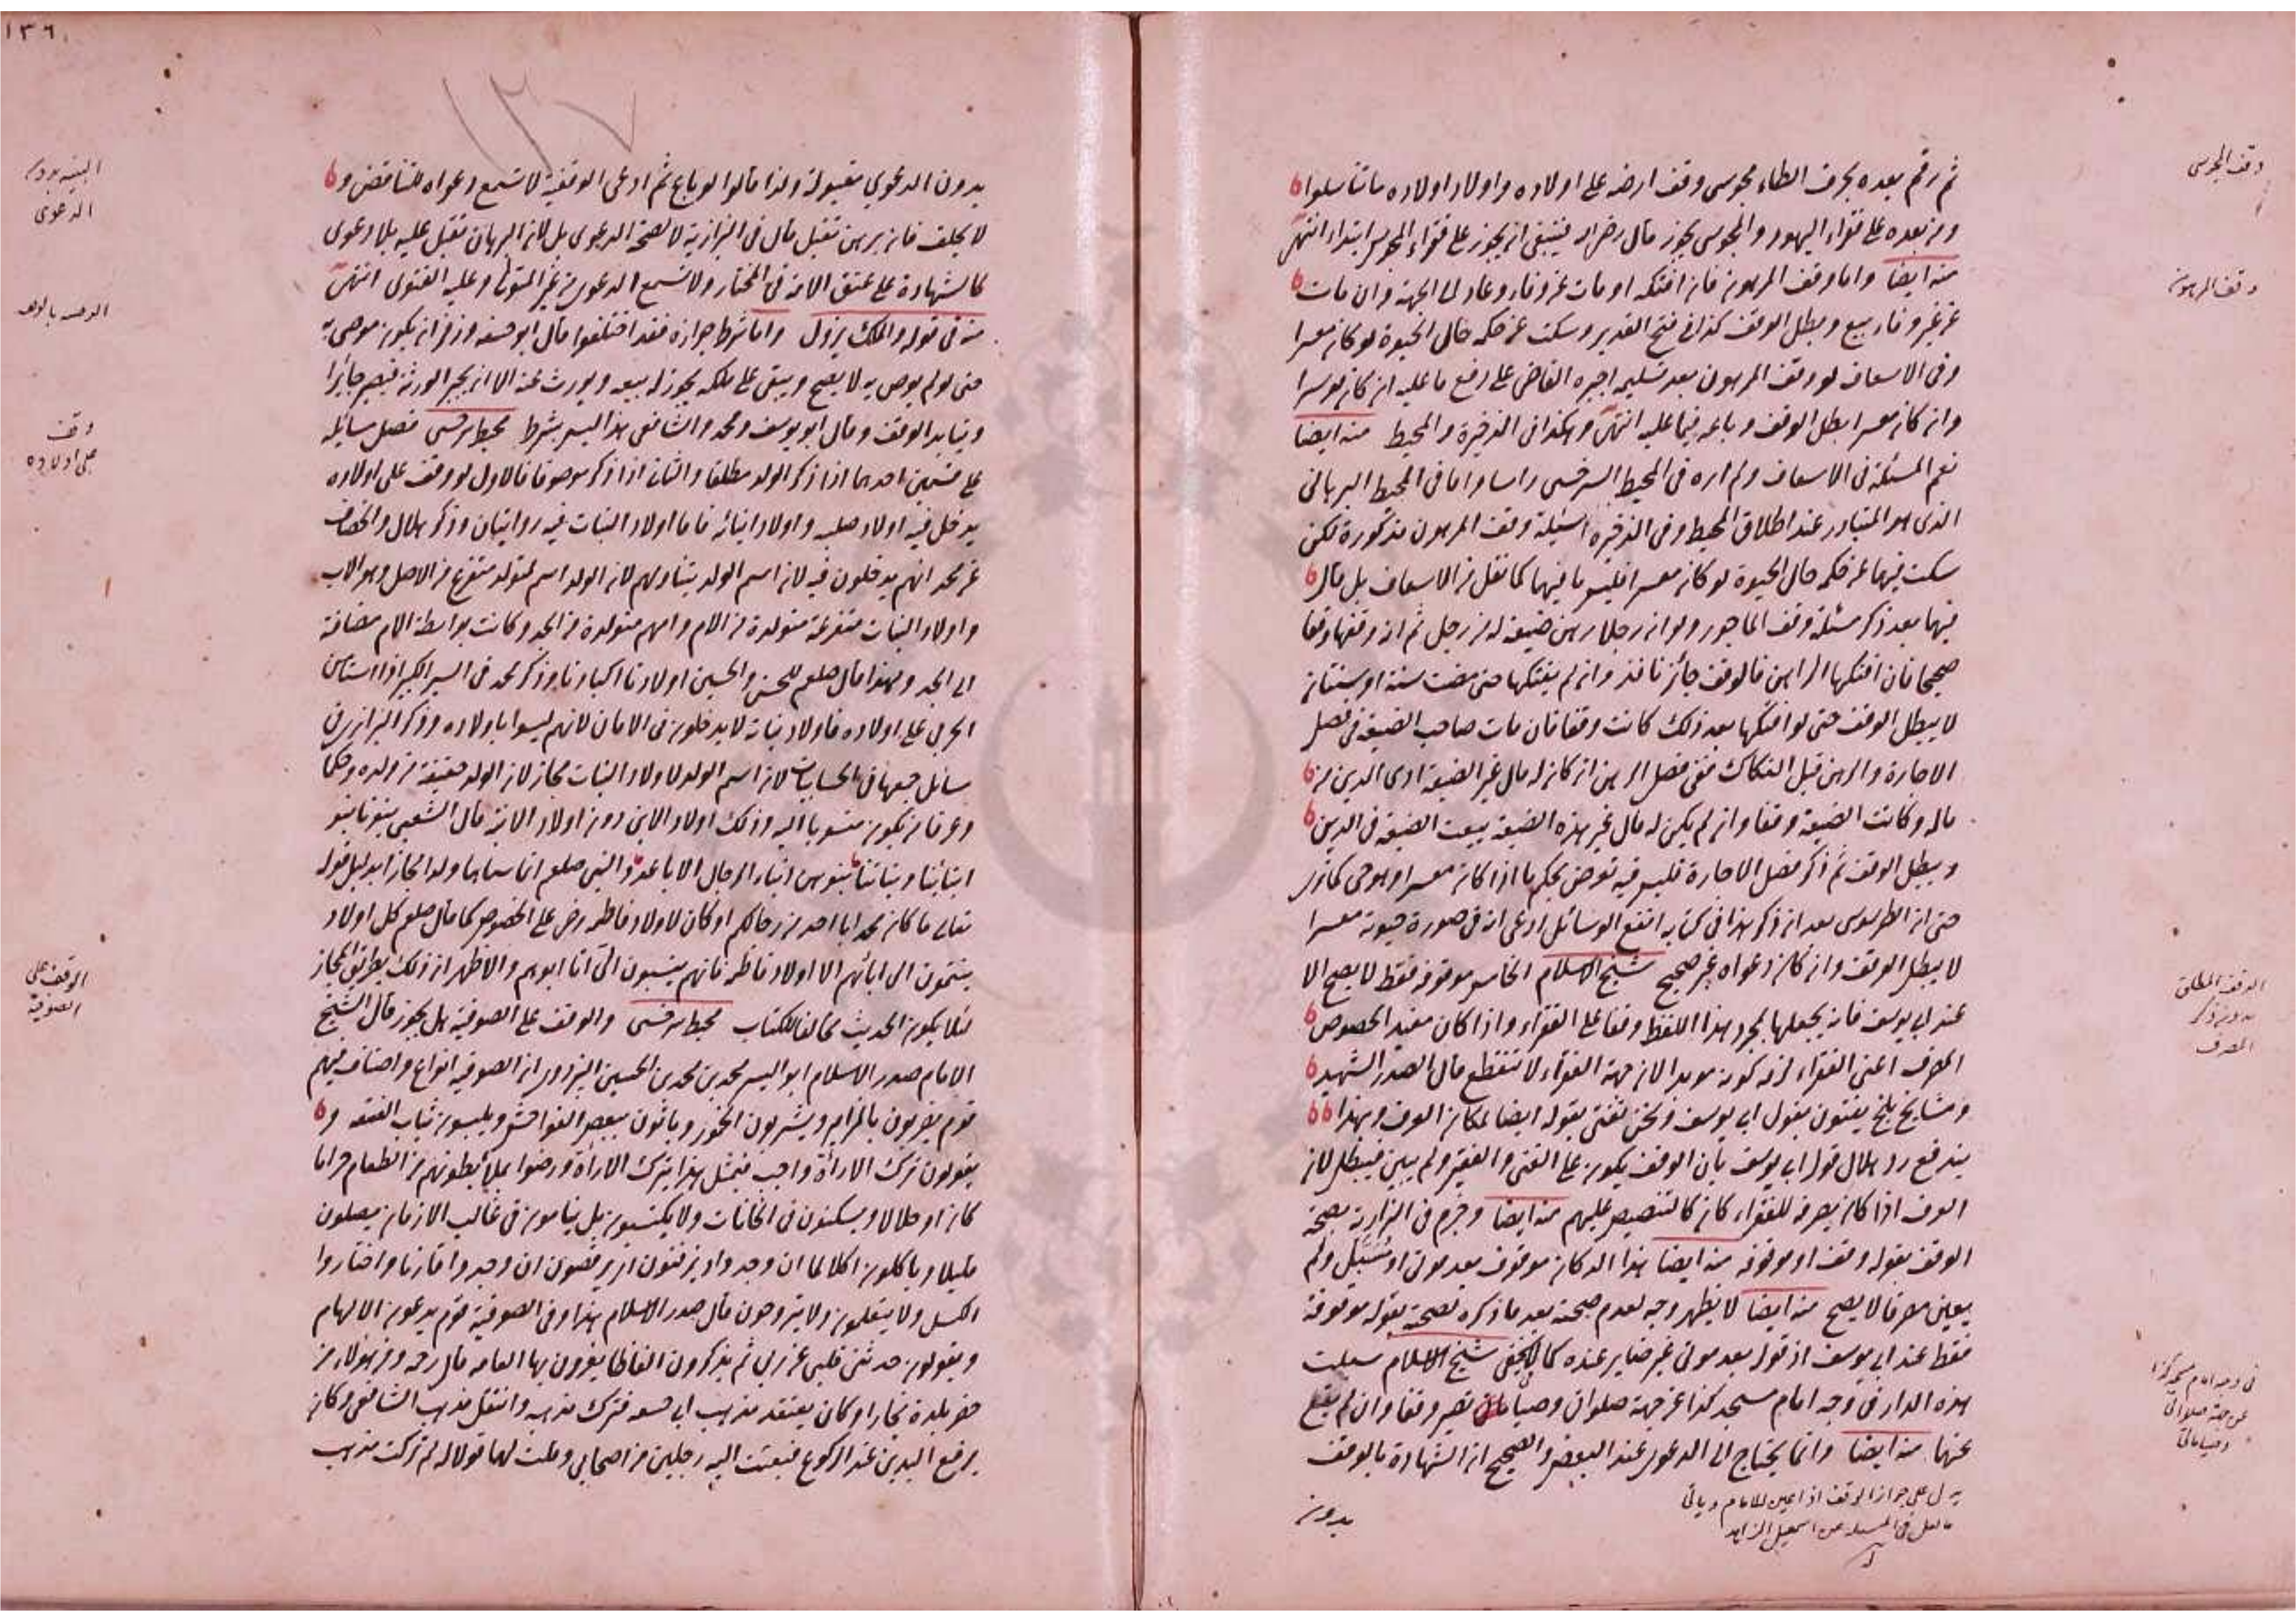 ثم رقم بعده بحرف الطاء مجوسى وقف ارضه على اولاده واولاد اولاده ما تناسلوا
ومن بعده على فقراء اليهود والمجوسى يجوز قال رضى الله فينبغى ان يجوز على فقراء المجوس ابتداء انتهى
منه ايضا واما وقف المرهون فان افتكه او مات عن وفاء وعاد الى الجهة وان مات
عن غير وفاء بيع وبطل الوقف كذا فى فتح القدير وسكت عن حكمه حالى الحيوة لو كان معسرا
وفى الاسعاف لو وقف المرهون بعد تسليمه اجبره القاضى على دفع ما عليه ان كان موسرا
وان كان معسرا بطل الوقف وباعه فيما عليه انتهى وهكذا فى الذخيرة والمحيط منه ايضا
نعم المسئلة فى الاسعاف ولم اره فى المحيط السرخسى راسا واما فى المحيط البرهانى
الذى هو المتبادر عند اطلاق المحيط وفى الذخيرة اسئلة وقف المرهون مذكورة لكن
سكت فيهما عن حكمه حال الحيوة لو كان معسرا فليس ما فيهما كما نقل من الاسعاف بل قال
فيهما بعد ذكر مسئلة وقف الماجور ولو ان رجلا رهن ضيعة له من رجل ثم انه وقفها وقفا
صحيحا فان افتكها الراهن فالوقف جائز نافذ وان لم يفتكها حتى مضت سنة او سنتان
لا يبطل الوقف حتى لو افتكها بعد ذلك كانت وقفا فان مات صاحب الضيعة فى فصل
الاجارة والرهن قبل الفكاك ففى فصل الرهن ان كان له مال غير الضيعة ادى الدين من
ماله وكانت الضيعة وقفا وان لم يكن له مال غير هذه الضيعة بيعت الضيعة فى الدين
وبطل الوقف ثم ذكر فصل الاجارة فليس فيه تعرض بحكم ما اذا كان معسرا وهو حى كما ترى
حتى ان الطرسوسى بعد ان ذكر هذا فى كتابه انفع الوسائل ادعى انه فى صورة حيوته معسرا
لا يبطل الوقف وان كان دعواه غير صحيح شيخ الاسلام الخامس موقوفة فقط لا يصح الا
عند ابى يوسف فانه يجعلها بمجرد هذا اللفظ وقفا على الفقراء واذا كان مفيد الخصوص
المصرف اعنى الفقراء لزم كونه مؤبدا لان جهة الفقراء لا تنقطع قال الصدر الشهيد
ومشايخ بلخ يفتون بقول ابى يوسف ونحن نفتى بقوله ايضا لمكان العرف وبهذا
يندفع رد هلال قول ابى يوسف بان الوقف يكون على الغنى والفقير ولم يبين فيبطل لان
العرف اذا كان يصرفه للفقراء كان كالتنصيص عليهم منه ايضا وجزم فى البزازية بصحة
الوقف بقوله وقف او موقوفة منه ايضا هذا الدكان موقوف بعد موتى او مسبل ولم
يعين مصرفا لا يصح منه ايضا لا يظهر وجه لعدم صحته بعد ما ذكره تصحة بقوله موقوفة
فقط عند ابى يوسف اذ قوله بعد موتى غير ضاير عنده كما لا يخفى شيخ الاسلام سبلت
هذه الدار فى وجه امام مسجد كذا عن جهة صلواتى وصياماتى تصير وقفا وان لم يقع
عنها منه ايضا وانما يحتاج الى الدعوى عند البعض والصحيح ان الشهادة بالوقف
يدل على جواز الوقف اذا عين للامام ويأتى
ما نقل فى المسئلة عن اسمعيل الزاهد
بدون
وقف المجوسى
وقف المرهون
الوقف المطلق
بدون ذكر
المصرف
فى وجه امام مسجد كذا
عن جهة صلواتى
وصياماتى
١٣٦
بدون الدعوى مقبولة ولذا قالوا لو باع ثم ادعى الوقفية لا تسمع دعواه للتناقض و
لا يحلف فان برهن تقبل قال فى البزازية لا لصحة الدعوى بل لان البرهان تقبل عليه بلا دعوى
كالشهادة على عتق الامة فى المختار ولا تسمع الدعوى من غير المتولى وعليه الفتوى انتهى
منه فى قوله والملك يزول واما شرط جوازه فقد اختلفوا قال ابو حنيفه وزفر ان يكون موصى به
حتى لو لم يوص به لا يصح ويبقى على ملكه يجوز له بيعه ويورث عنه الا ان يجيز الورثة فيصير جائزا
ويتابد الوقف وقال ابو يوسف ومحمد والشافعى هذا ليس بشرط محيط سرخسى فصل مسائله
على قسمين احدهما اذا ذكر الولد مطلقا والثانى اذا ذكر موصوفا فالاول لو وقف على اولاده
يدخل فيه اولاد صلبه واولاد ابنائه فاما اولاد البنات فيه روايتان وذكر هلال والخصاف
عن محمد انهم يدخلون فيه لان اسم الولد يتناولهم لان الولد اسم لمتولد متفرع من الاصل وهو الاب
واولاد البنات متفرعة متولدة من الام وامهم متولدة من الجد وكانت بواسطة الام مضافة
الى الجد ولهذا قال صلعم للحسن والحسين اولادنا اكبادنا وذكر محمد فى السير الكبير اذا استأمن
الحربى على اولاده فاولاد بناته لا يدخلون فى الامان لانهم ليسوا باولاده وذكر البزازى فى
مسائل جمعها فى الحسابيات لان اسم الولد لاولاد البنات مجاز لان الولد حقيقة من ولده وحكما
وعرفا من يكون منسوبا اليه وذلك اولاد الابن دون اولاد الابنة قال الشعبى بنونا بنو
ابنائنا وبناتنا بنوهن ابناء الرجال الاباعد والنبى صلعم انما سماهما ولدا مجازا بدليل قوله
تعالى ما كان محمد ابا احد من رجالكم او كان لاولاد فاطمه رض على الخصوص كما قال صلعم كل اولاد
ينتمون الى ابائهم الا اولاد فاطمه فانهم ينسبون الى انا ابوهم والاظهر ان ذلك بطريق المجاز
لئلا يكون الحديث مخالفا للكتاب محيط سرخسى والوقف على الصوفية هل يجوز قال الشيخ
الامام صدر الاسلام ابو اليسر محمد بن محمد بن الحسين البزدوى ان الصوفية انواع واصناف فمنهم
قوم يضربون بالمزامر ويشربون الخمور وياتون ببعض الفواحش ويلبسون ثياب الفسقه و
يقولون ترك الاراءة واجب فيتمثل هذا بترك الاراة ورضوا بملأ بطونهم من الطعام حراما
كان او حلالا ويسكنون فى الخانات ولا يكتسبون بل ينامون فى غالب الازمان يصلون
قليلا وياكلون اكلا لما ان وجدوا ويزفنون اى يرقصون ان وجدوا قارنا واختاروا
الكسل ولا يتعلمون ولا يتزوجون قال صدر الاسلام هذا وفى الصوفية قوم يدعون الالهام
ويقولون حدثنى قلبى عن ربى ثم يذكرون الفاظا يغرون بها العامه قال رحه ومن هؤلاء من
حضر بلدة بخارا وكان يعتقد مذهب ابى حنيفه فترك مذهبه وانتقل مذهب الشافعى وكان
يرفع اليدين عند الركوع فبعثت اليه رجلين من اصحابى وقلت لهما قولا له لم تركت مذهب
البينة بدون
الدعوى
وقف
على اولاده
الوقف على
الصوفية